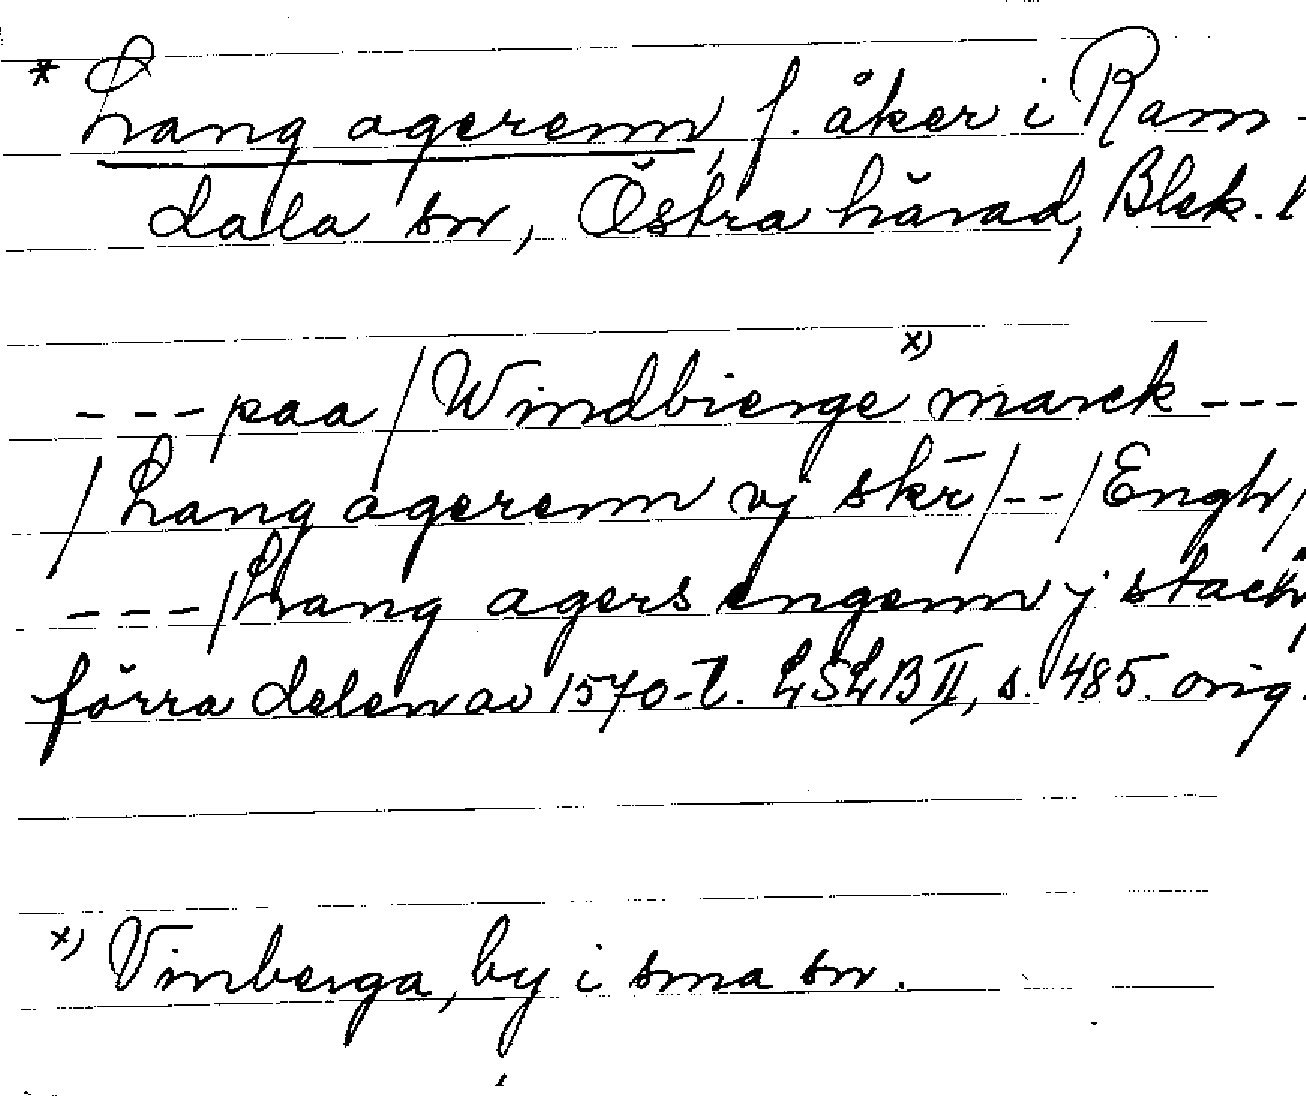 * Lang agerenn, f. åker i Ram-
dala sn, Östra härad, Blek. l
--- paa / Windbierge x) marck ---
/ Lang agerenn vj skr̄ /--/ Engh /
--- / Lang agers engenn j stack,
förra delen av 1570-t. LSLB II, s. 485. orig.
x) Vinberga, by i sma sn.